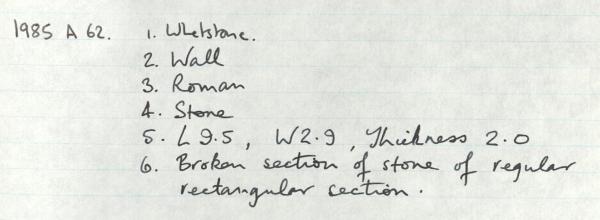 1985 A 62. 1. Whetstone.
2. Wall
3. Roman
4. Stone
5. L 9.5, W2.9, Thickness 2.0
6. Broken section of stone of regular
rectangular section.